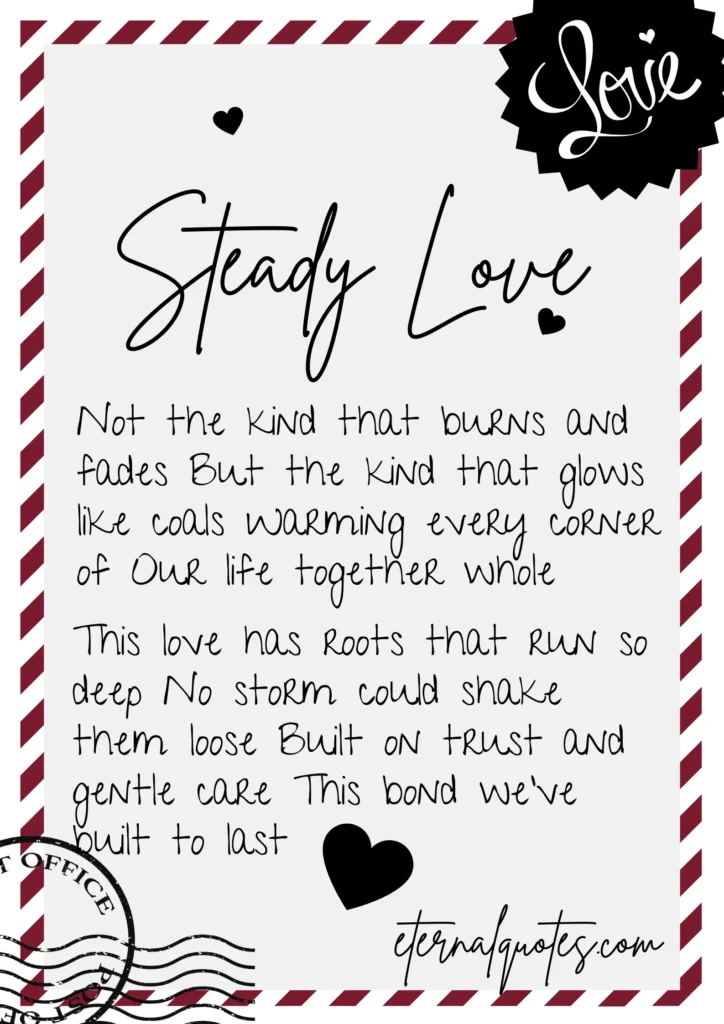 Love
Steady Love
Not the kind that burns and
fades But the kind that glows
like coals warming every corner
of Our life together whole
This love has roots that run so
deep No storm could shake
them loose Built on trust and
gentle care This bond we've
built to last
eternalquotes.com
T OFFICE
POST OF